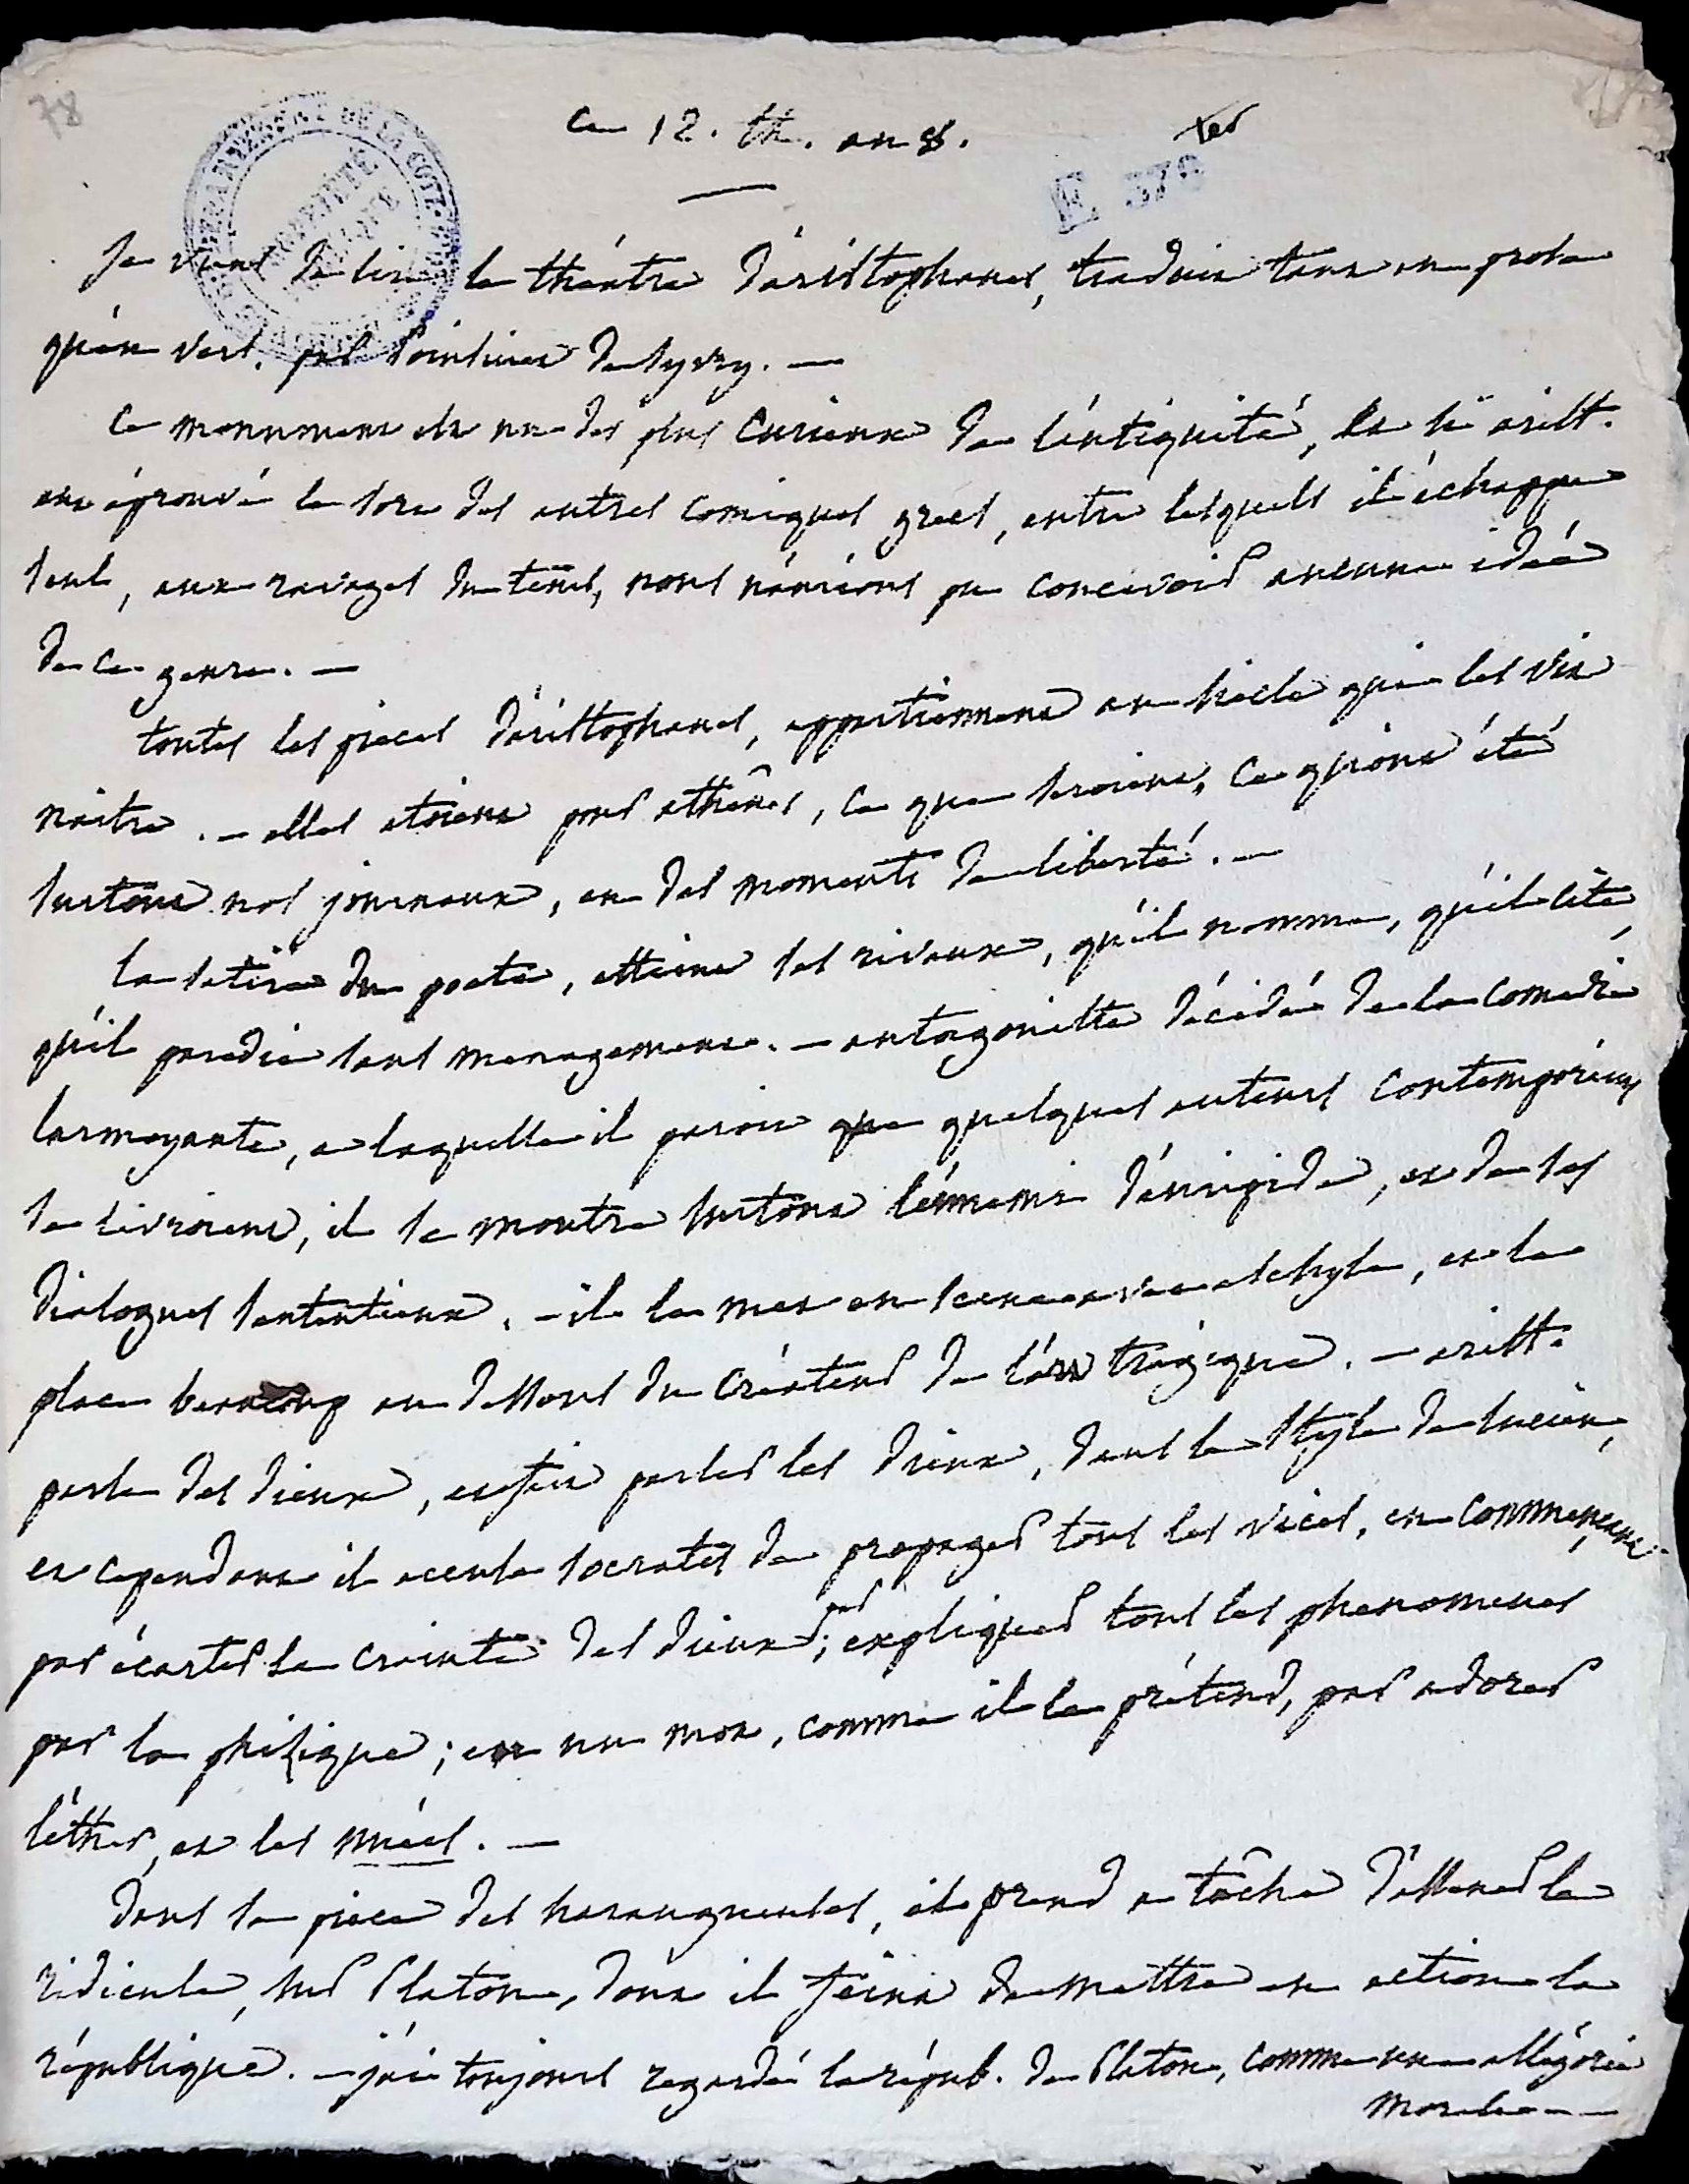 78
ce 12. th. an 8.
E 378
DÉPARTEMENT DE LA CÔTE-D'OR
PROPRIÉTÉ
Je viens de lire le théatre d'aristophanes, traduit tant en prose
qu'en vers. par Poinsinet de Syvry. —
Ce monument est un des plus curieux de l'antiquité, et si arist.
eut éprouvé le sort des autres comiques grecs, entre lesquels il échappe
seul, aux ravages du tems, nous n'aurions pu concevoir aucune idée
de ce genre. —
toutes les pieces d'aristophanes, appartiennent au siecle qui les vit
naitre. — elles etoient pour athênes, ce que seroient, ce qu'ont été
surtout nos journaux, en des momens de liberté. —
la satire du poete, atteint ses rivaux, qu'il nomme, qu'il cite,
qu'il parodie sans menagement. — antagoniste décidé de la comedie
larmoyante, a laquelle il paroit que quelques auteurs contemporains
se livroient, il se montre surtout l'ennemi d'euripide, et de ses
dialogues sententieux. — il le met en scene avec eschyle, et le
place beaucoup au dessous du créateur de l'art tragique. — arist.
parle des dieux, et fait parler les dieux, dans le style de lucien,
et cependant il accuse socrates de propager tous les vices, en commençant
par écarter la crainte des dieux; par expliquer tous les phenomenes
par la phisique; et en un mot, comme il le prétend, par adorer
l'éther, et les nuées. —
dans sa piece des harangueuses, il prend a tâche d'assener le
ridicule, sur Platon, dont il feint de mettre en action la
république. — j'ai toujours regardé la répub. de Platon, comme une allégorie
morale —